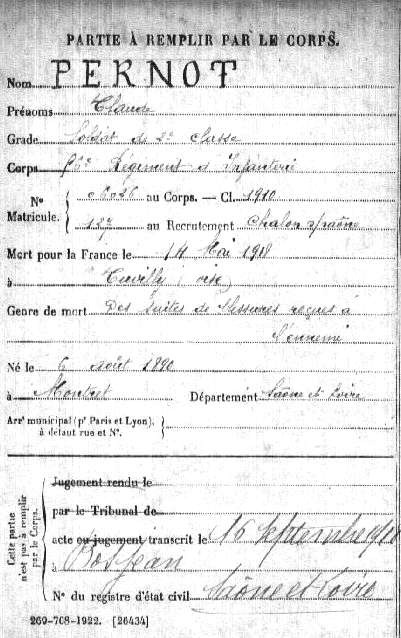 PARTIE À REMPLIR PAR LE CORPS.
Nom PERNOT
Prénoms Claude
Grade Soldat de 2e classe
Corps Régiment d'Infanterie
No Matricule. au Corps. — Cl. 1910
127 au Recrutement Chalon s/Saône
Mort pour la France le 14 Mai 1918
à Cuvilly (oise)
Genre de mort Des suites de blessures reçues à
l'ennemi
Né le 6 août 1890
à Montret Département Saône et Loire
Arrt municipal (pr Paris et Lyon),
à défaut rue et No.
Cette partie n'est pas à remplir par le Corps.
Jugement rendu le
par le Tribunal de
acte ou jugement transcrit le 16 Septembre 1918
à Bosjean
No du registre d'état civil Saône et Loire
269-708-1922. [26434]